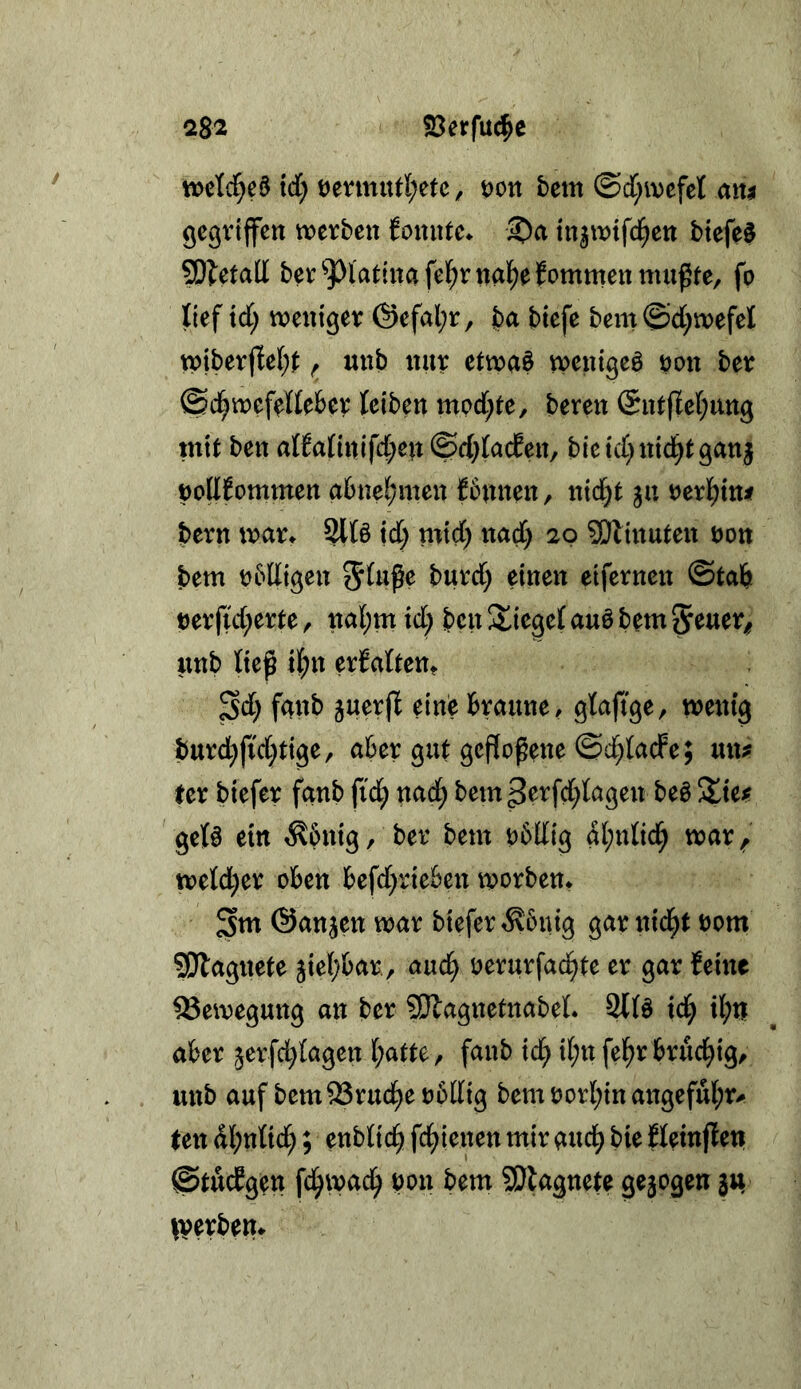 282 Versuche
welches ich vermuthete, von dem Schwefel an-
gegriffen werden konnte. Da inzwischen dieses
Metall der Platina sehr nahe kommen mußte, so
lief ich weniger Gefahr, da diese dem Schwefel
widersteht, und nur etwas weniges von der
Schwefelleber leiden mochte, deren Entstehung
mit den alkalinischen Schlacken, die ich nicht ganz
vollkommen abnehmen können, nicht zu verhin-
dern war. Als ich mich nach 20 Minuten von
dem völligen Fluße durch einen eisernen Stab
versicherte, nahm ich den Tiegel aus dem Feuer,
und ließ ihn erkalten.
Ich fand zuerst eine braune, glasige, wenig
durchsichtige, aber gut gefloßene Schlacke; un-
ter dieser fand sich nach dem Zerschlagen des Tie-
gels ein König, der dem völlig ähnlich war,
welcher oben beschrieben worden.
Im Ganzen war dieser König gar nicht vom
Magnete ziehbar, auch verursachte er gar keine
Bewegung an der Magnetnadel. Als ich ihn
aber zerschlagen hatte, fand ich ihn sehr brüchig,
und auf dem Bruche völlig dem vorhin angeführ-
ten ähnlich; endlich schienen mir auch die kleinsten
Stückgen schwach von dem Magnete gezogen zu
werden.